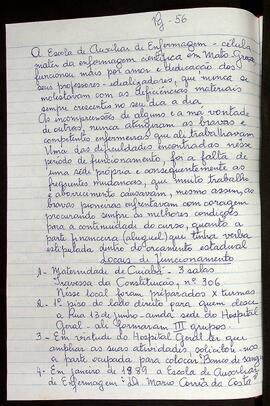 Pg - 56
A Escola de Auxiliar de Enfermagem - célula
mater da enfermagem científica em Mato Grosso
funcionou mais por amor e dedicação dos
seus professores - idealizadores, que nunca se
molestavam com as deficiências materiais
sempre crescentes no seu dia a dia.
As incompreensões de alguns e a má vontade
de outras, nunca atingiram as bravas e
competentes enfermeiras que ali trabalharam
Uma das dificuldades encontradas nesse
período de funcionamento, foi a falta de
uma sede própria e consequentemente as
frequentes mudanças, que muito trabalho
e aborrecimento causavam, mesmo assim, as
bravas pioneiras enfrentavam com coragem
procurando sempre as melhores condições
para a continuidade do curso, quanto a
parte financeira (aluguel) que tinha verba
estipulada dentro do orçamento estadual
Locais de funcionamento
1- Maternidade de Cuiabá - 3 salas
Travessa da Constituição, nº 306.
Nesse local foram preparados X turmas
2 - 1º piso do lado direito para quem desce
a Rua 13 de junho - ainda sede do Hospital
Geral - ali formaram III grupos.
3 - Em virtude do Hospital Geral ter que
ampliar as suas atividades, solicitou-nos
a parte ocupada para colocar "Banco de sangue"
4 - Em janeiro de 1979 a Escola de Auxiliar
de Enfermagem "Dr. Mario Corrêa da Costa"